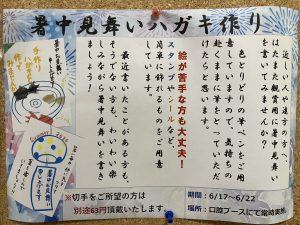 暑中見舞いハガキ作り
近しい人や遠方の方へ、
はたまた観賞用に暑中見舞い
を書いてみませんか？
色とりどりの筆ペンをご用
意していますので、気持ちの
赴くままに筆をとっていただ
けたらと思います。
絵が苦手な方も大丈夫！
スタンプやシールなど、
簡単に飾れるものをご用意
しています。
最近書いたことがある方も、
そうでない方も、わいわい楽
しみながら暑中見舞いを書き
ましょう！
※切手をご希望の方は
別途63円頂戴いたします。
期間：6/17～6/22
場所：口腔ブースにて常時実施